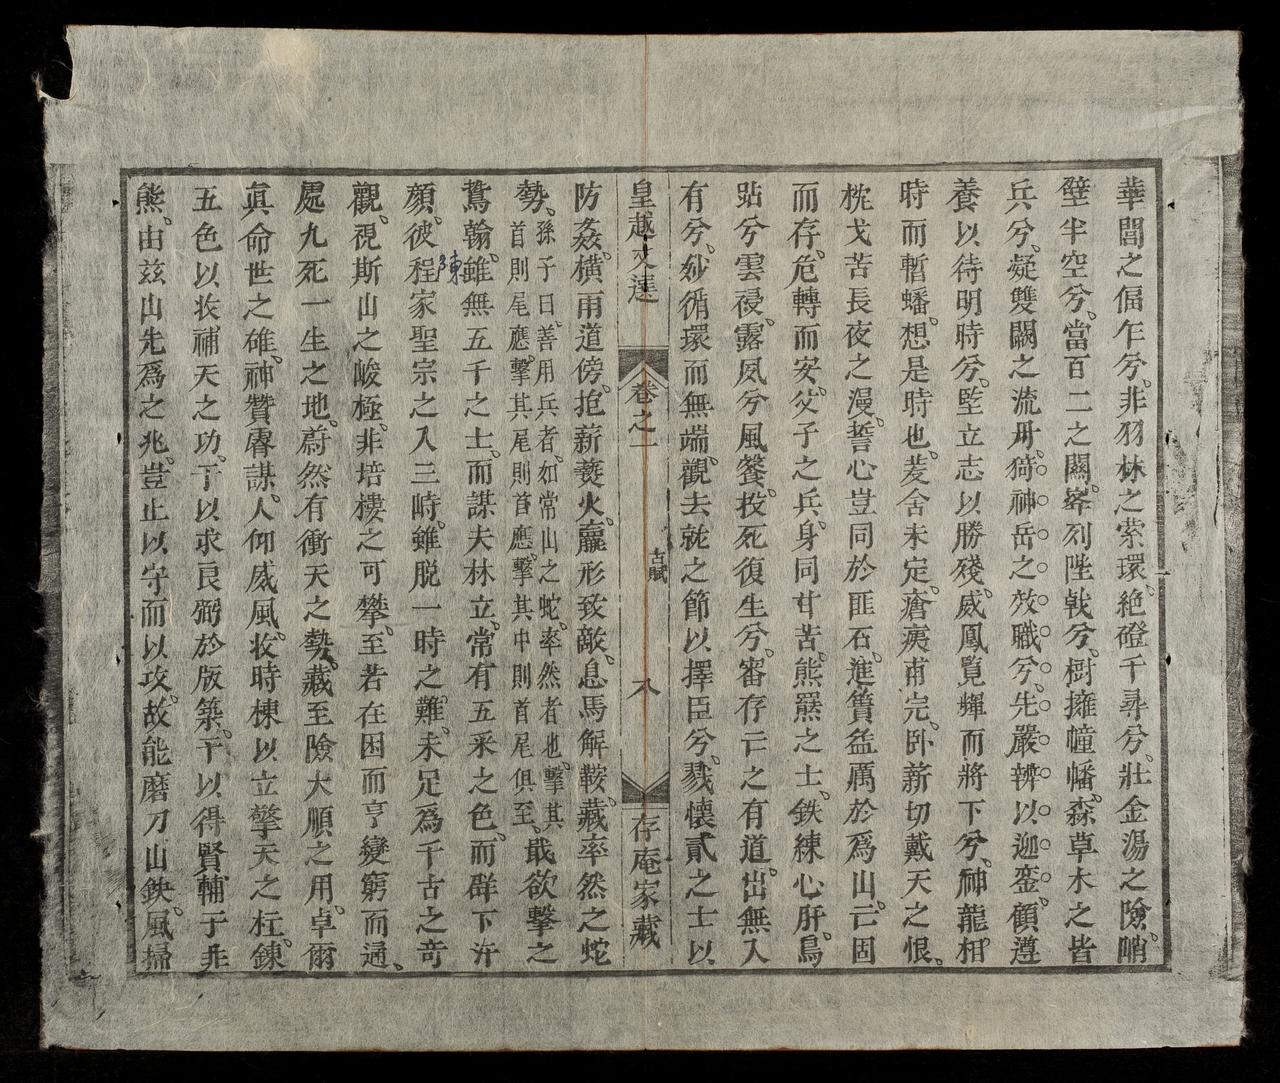 華閭之偪乍兮。非羽林之縈環。絶磴千尋兮。壯金湯之險。峭
壁半空兮。當百二之關。峯列陛戟兮。樹擁幢幡。森草木之皆
兵兮。凝雙闕之流丹。猗神岳之效職兮。先嚴辨以迦鑾。顧遵
養以待明時兮。堅立志以勝殘。威鳳覧輝而將下兮。神龍相
時而暫蟠。想是時也。茇舍未定。瘡痍甫完。卧薪切戴天之恨。
枕戈苦長夜之漫。誓心豈同於匪石。進簣益厲於爲山。亡固
而存。危轉而安。父子之兵。身同甘苦。熊羆之士。鉄練心肝。鳥
跕兮雲祲。露夙兮風餐。投死復生兮。審存亡之有道。出無入
有兮。妙循環而無端。觀去就之節以擇臣兮。戮懷貳之士以
皇越文選 卷之一 古賦 八 存庵家藏
防姦。横雨道傍。抱薪爇火。麗形致敵。息馬解鞍。藏率然之蛇
勢。孫子曰。善用兵者。如常山之蛇。率然者也。擊其首則尾應。擊其尾則首應。擊其中則首尾俱至。戢欲擊之
鷙翰。雖無五千之士。而謀夫林立。常有五采之色。而群下汗
顔。彼程陳家聖宗之入三峙。雖脱一時之難。未足爲千古之竒
觀。視斯山之峻極。非培塿之可攀。至若在困而亨。變窮而通。
處九死一生之地。蔚然有衝天之勢。藏至險大順之用。卓爾
眞命世之碓。神贊睿謀。人仰威風。收時棟以立擎天之柱。鍊
五色以收補天之功。于以求良弼於版築。于以得賢輔于非
熊。由兹山先爲之兆。豈止以守而以攻。故能磨刀山鉄。風掃